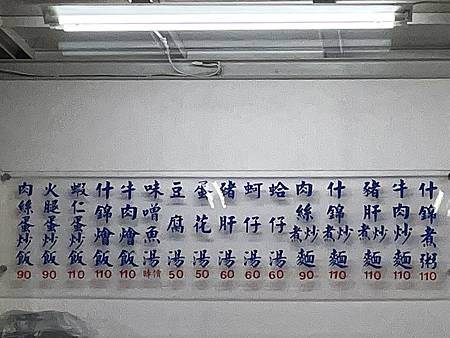 什錦煮粥 110
牛肉炒麵 110
豬肝煮炒麵 110
什錦煮炒麵 110
肉絲煮炒麵 90
蛤仔湯 60
蚵仔湯 60
豬肝湯 60
蛋花湯 50
豆腐湯 50
味噌魚湯 時價
牛肉燴飯 110
什錦燴飯 110
蝦仁蛋炒飯 110
火腿蛋炒飯 90
肉絲蛋炒飯 90